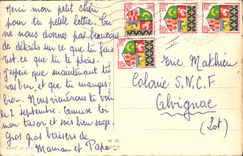 Merci mon petit chéri
pour ta petite lettre. Tu
ne nous donnes pas beaucoup
de détails sur ce que tu fais
Est-ce que ce te plait
J'espère que maintenant tu
vas bien, et que tu manges
bien. Nous viendrons te voir
le 2 septembre. Amuse toi
mon trésor et sois bien sage.
Gros gros baisers de
Maman et Papa
Eric Mathieu
Colonie S.N.C.F
Alvignac
(Lot)